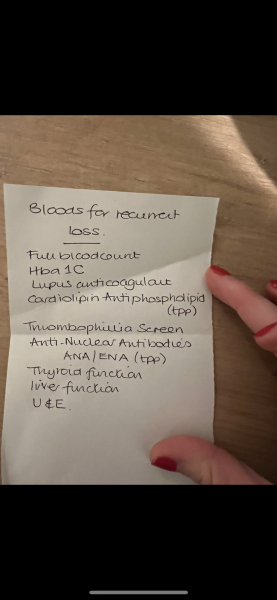 Bloods for recurrent
loss.
Full blood count
Hba 1C
Lupus anticoagulant
Cardiolipin Antiphospholipid
(tpp)
Thrombophilia Screen
Anti-Nuclear Antibodies
ANA/ENA (tpp)
Thyroid function
liver function
U&E.